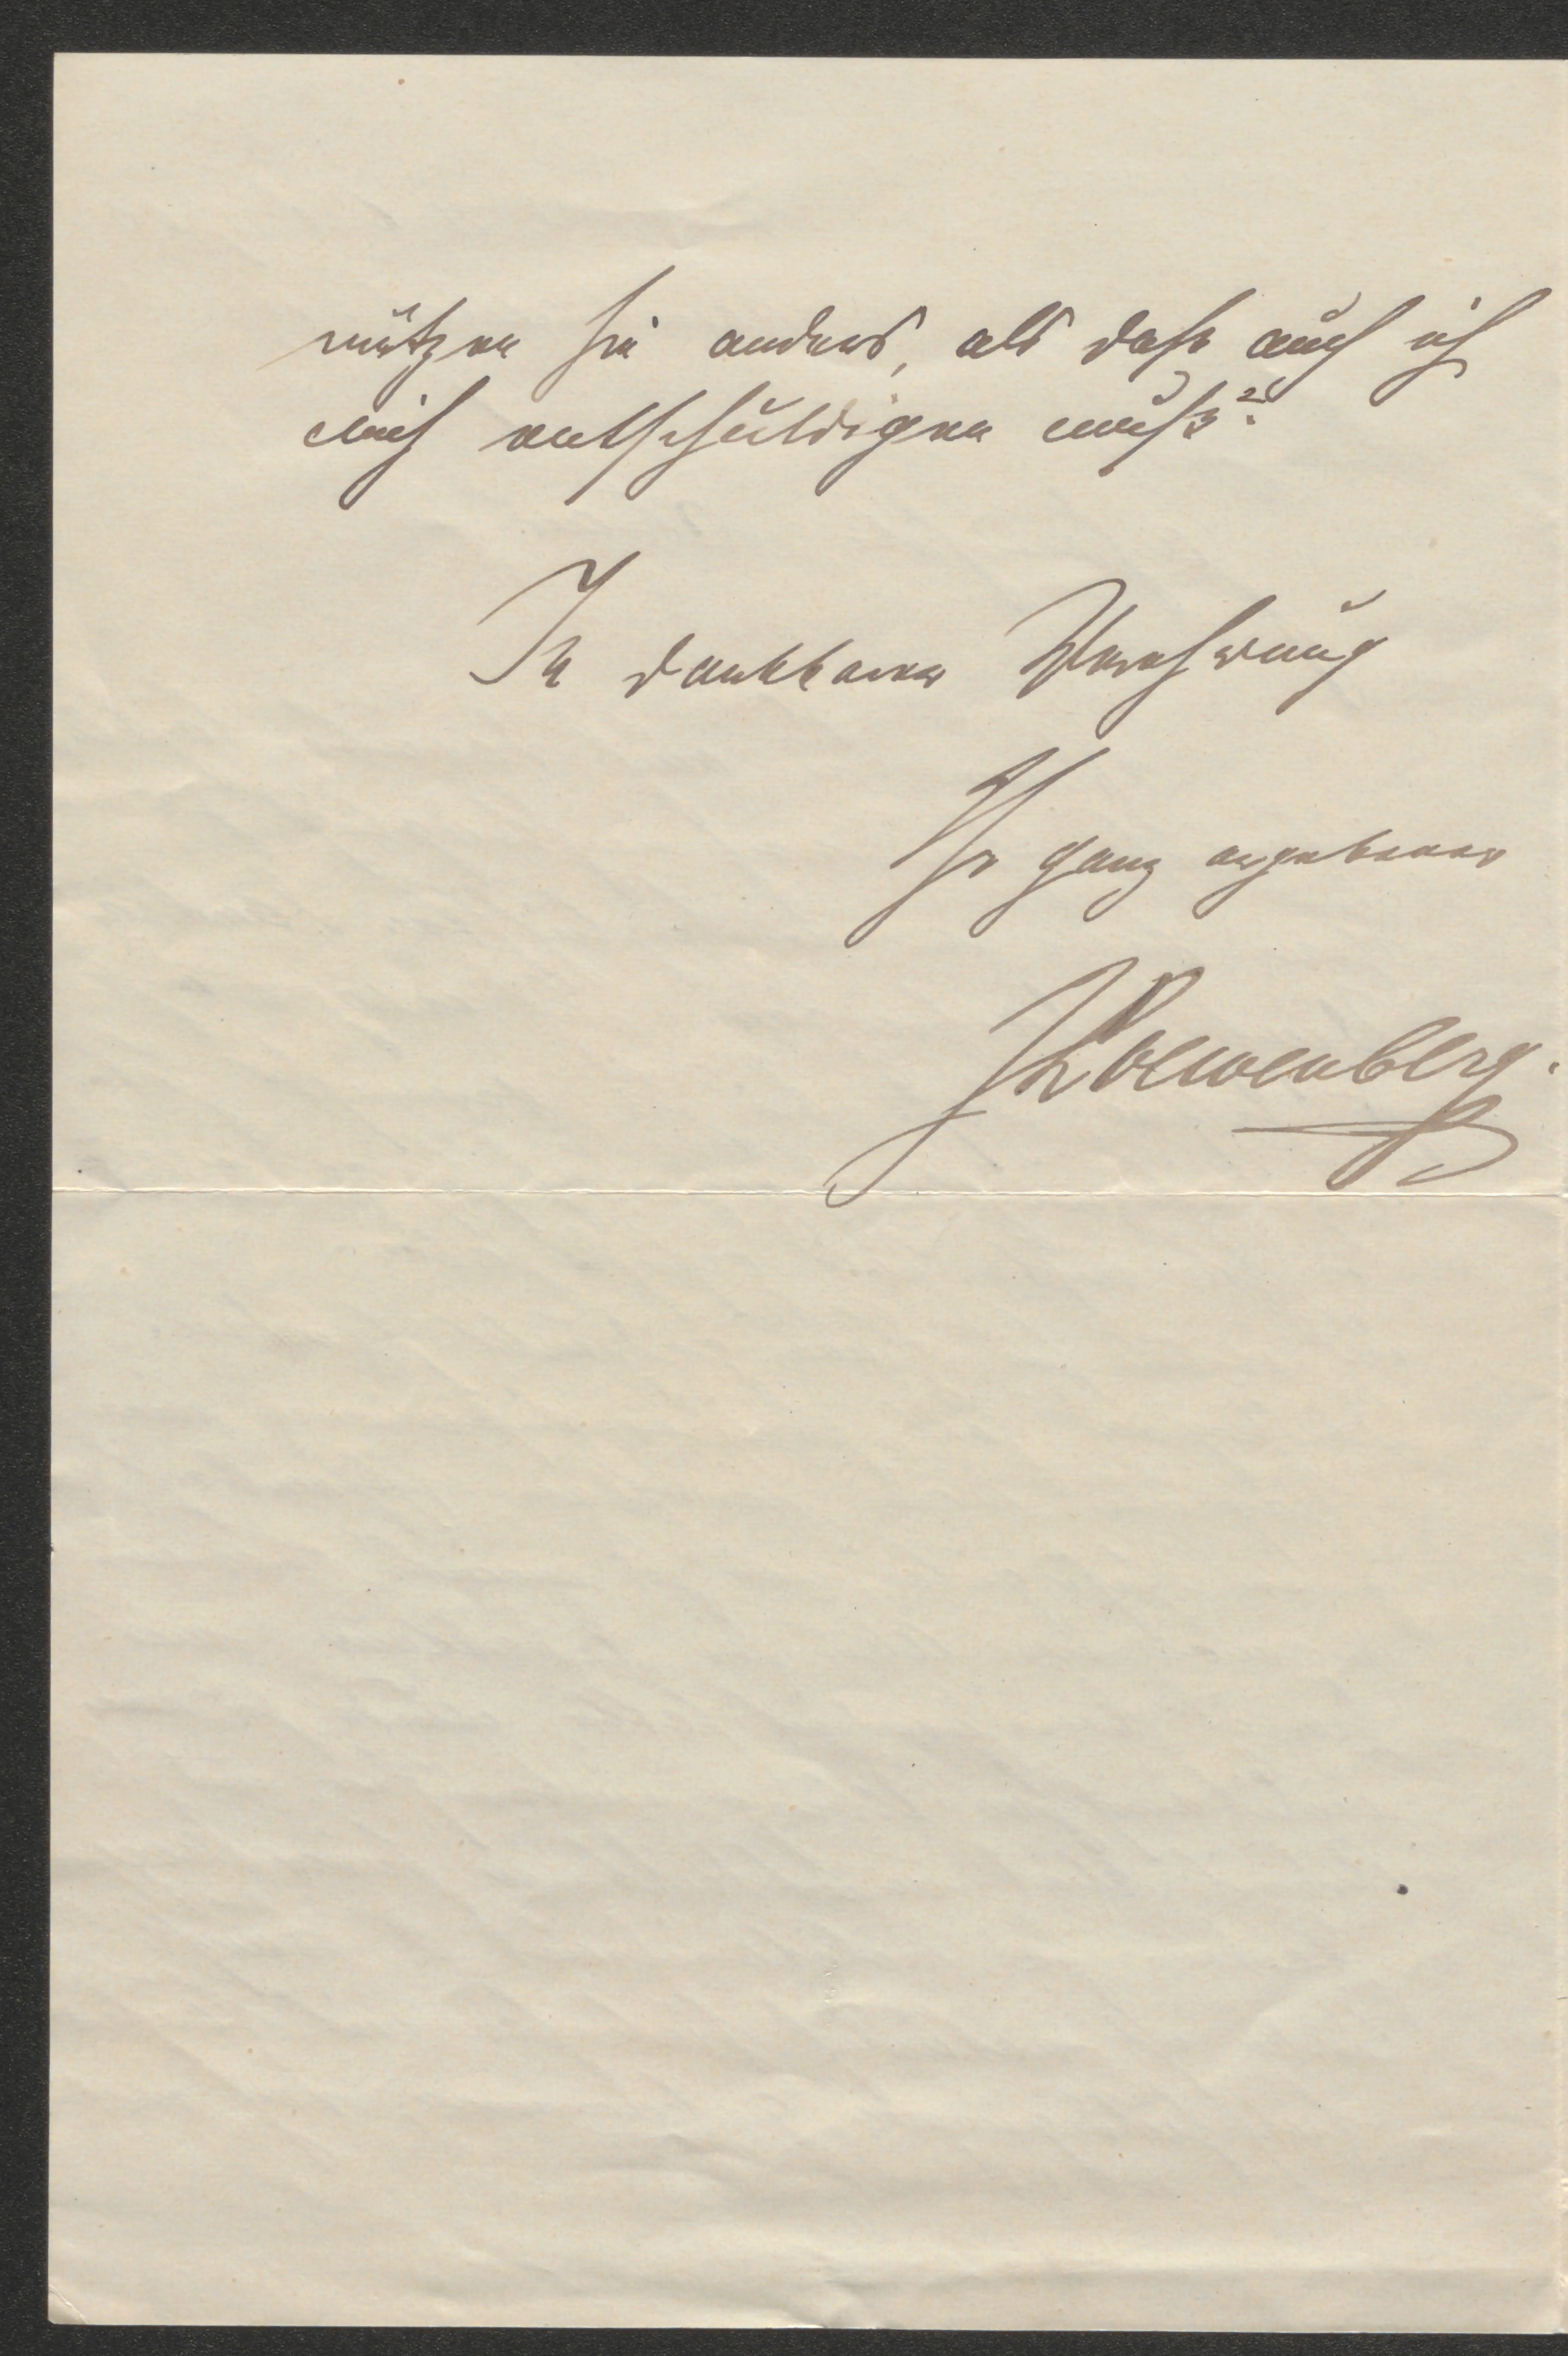 nützen sie anders, als daß auch ich
mich entschuldigen muß?
In dankbarer Verehrung
Ihr ganz ergebener
JLoewenberg.